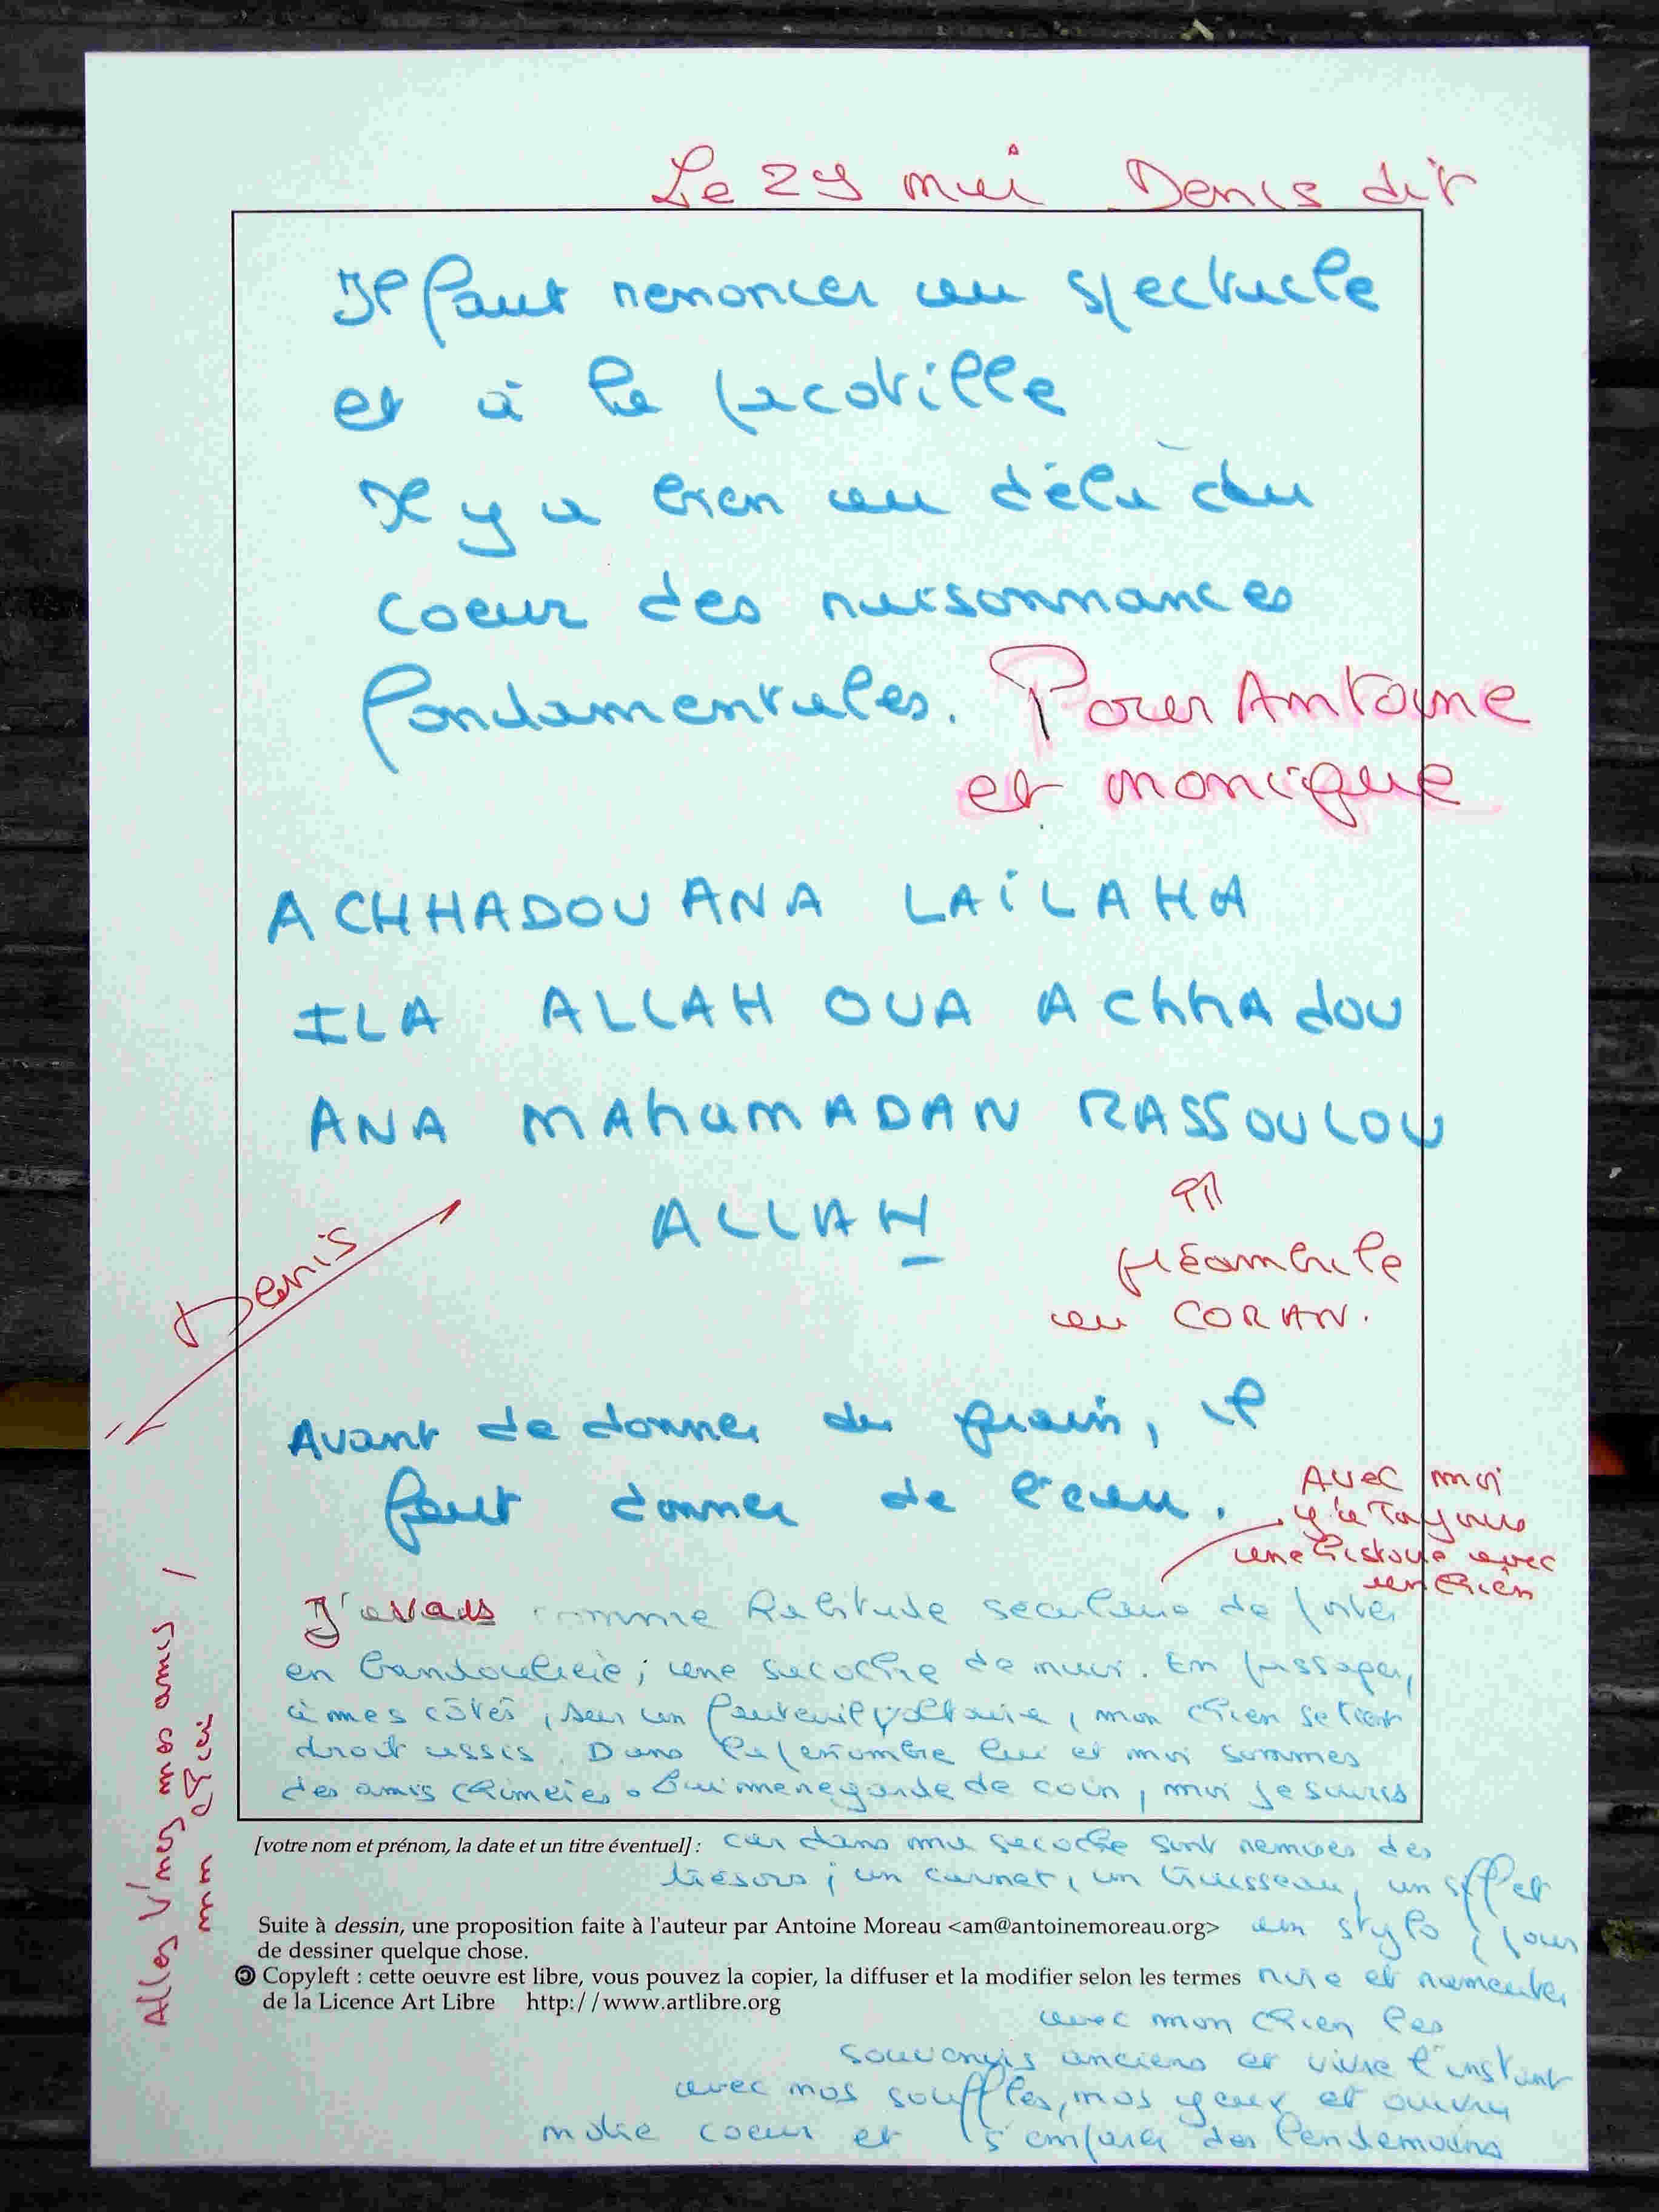 Le 29 mai Denis dit
Il faut renoncer au spectacle
et à la pacotille
Il y a bien au délà du
coeur des raisonnances
fondamentales.
Pour Antoine
et monique
ACHHADOU ANA LAILAHA
ILA ALLAH OUA AChhAdou
ANA MAhaMADAN RASSOULOU
ALLAH
préambule
au CORAN.
Denis
Avant de donner du grain, il
faut donner de l'eau.
Avec moi
y'a Toujours
une histoire avec
un chien
J'avais comme habitude seculaire de porter
en bandouliere; une sacoche de cuir. En passager,
à mes côtés, sur un fauteuil voltaire, mon chien se tient
droit assis. Dans la penombre lui et moi sommes
des amis chimeres. Lui me regarde de coin, moi je souris
[votre nom et prénom, la date et un titre éventuel] : car dans ma sacoche sont remises des
trésors; un carnet, un trousseau, un sifflet
Suite à dessin, une proposition faite à l'auteur par Antoine Moreau <am@antoinemoreau.org> un stylo; pour
de dessiner quelque chose.
Copyleft : cette oeuvre est libre, vous pouvez la copier, la diffuser et la modifier selon les termes rire et
de la Licence Art Libre http://www.artlibre.org
avec mon chien les
souvenirs anciens et vivre l'instant
avec nos souffles, nos yeux et ouvrir
notre coeur et des lendemains
Alles V'nez mes amis !